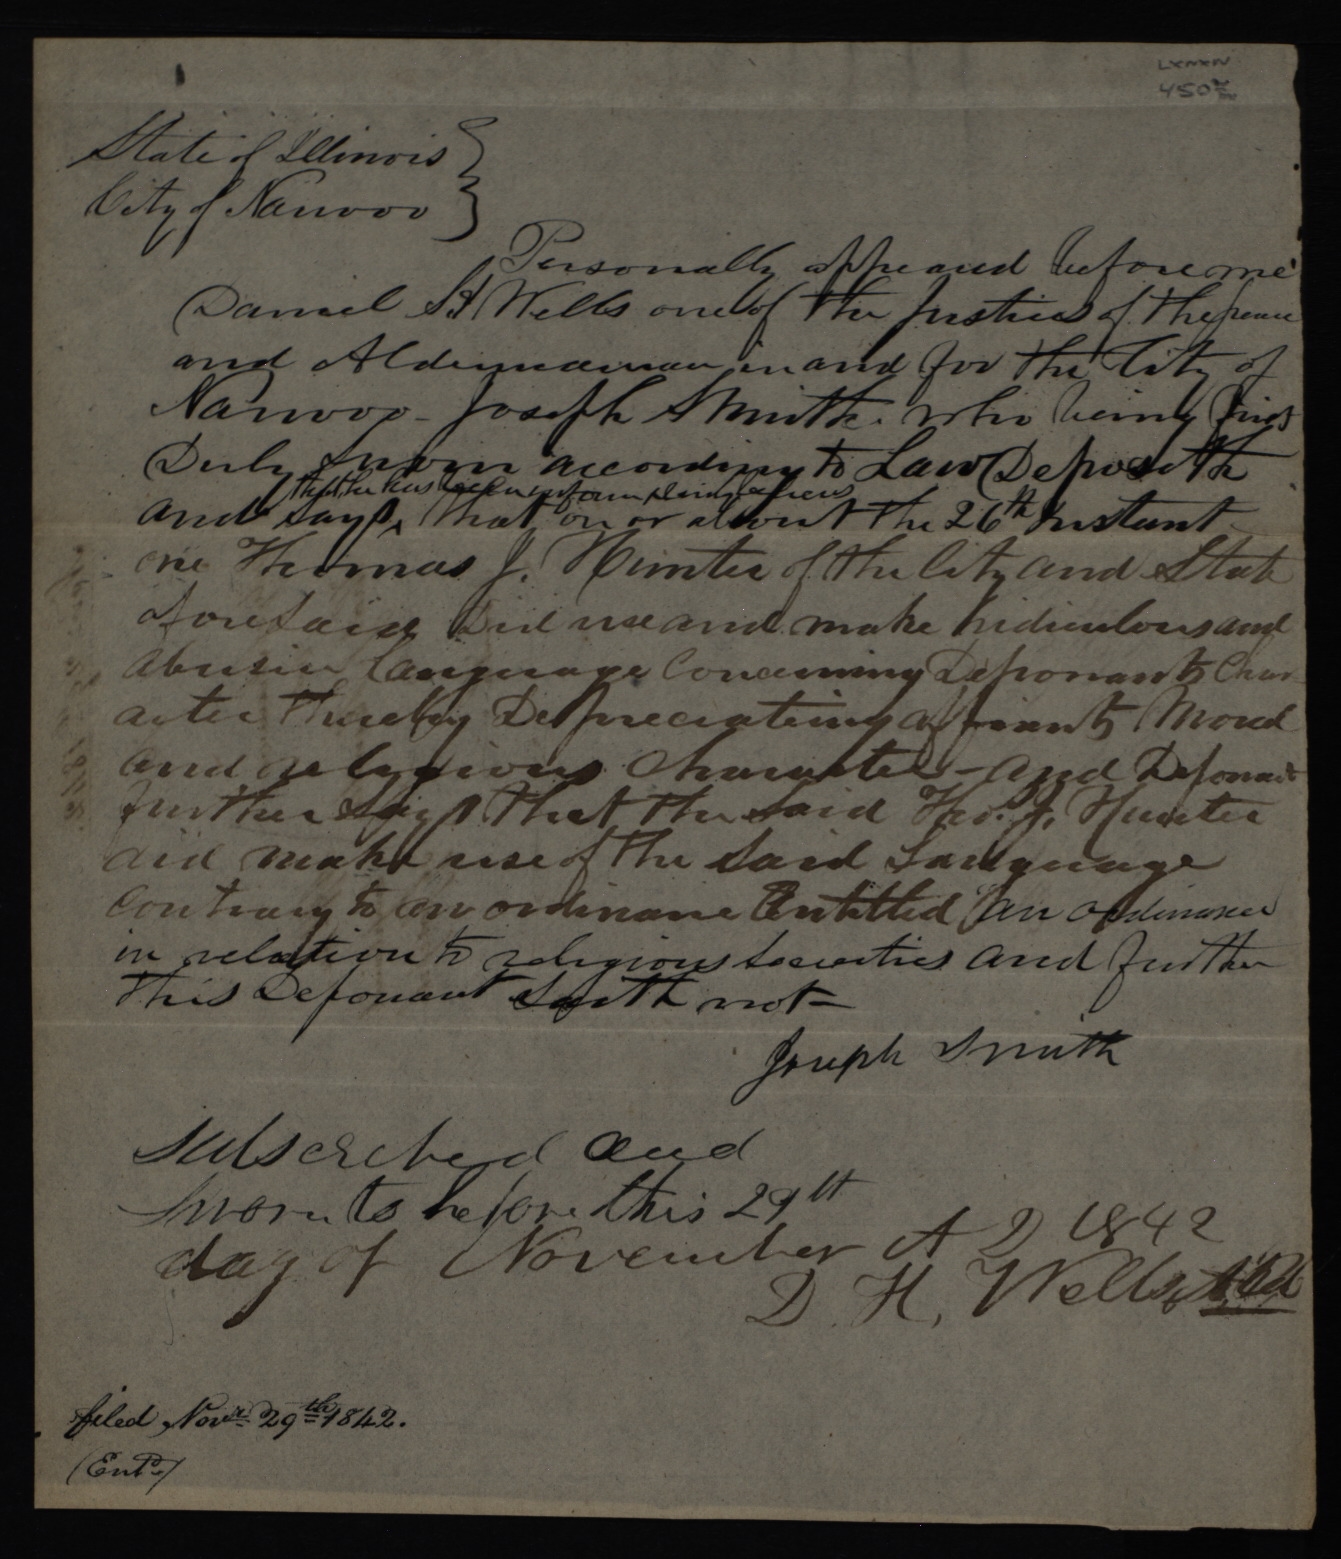 State of Illinois }
City of Nauvoo }
Personally appeared before me
Daniel H Wells one of the Justices of the peace
and Aldermaman in and for the City of
Nauvoo - Joseph Smith. who being first
Duly sworn according to Law Deposeth
that he has been informed and believes
and Says, that on or about the 26th Instant
one Thomas J. Hunter of the City and State
aforesaid Did use and make ridiculous and
abusive language Concerning Deponants Char
acter thereby Depreciating affiants Moral
and religious character - and Deponant
further Says that the said Tho. J. Hunter
did make use of the said Language
contrary to an ordinance Entitled an ordinance
in relation to religious societies and further
this Deponant Saith not -
Joseph Smith
Subscribed and
sworn to before this 29th
day of November A D 1842
D. H. Wells, Ald
filed Novr 29th 1842.
(Entd)